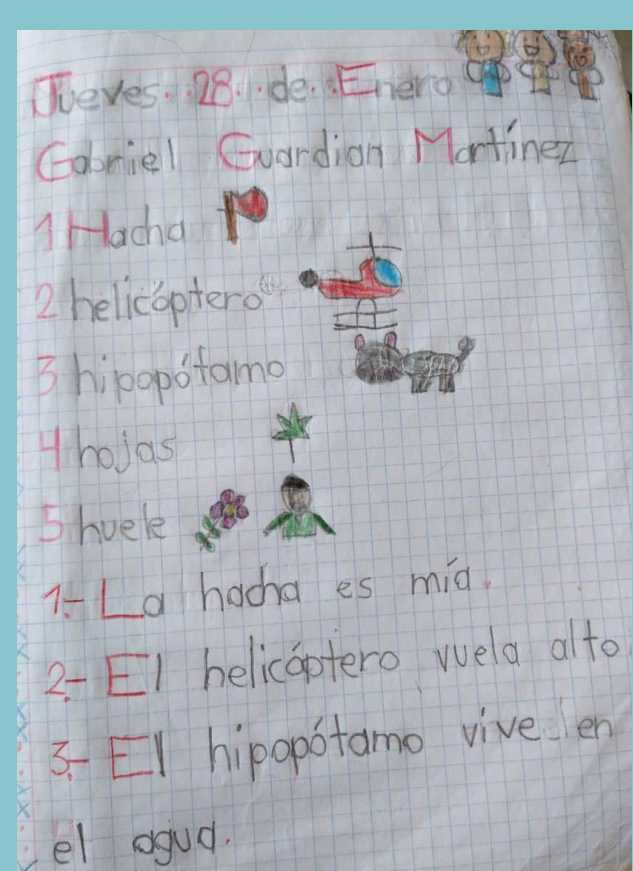 Jueves. 28. de. Enero
Gabriel Guardian Martínez
1 Hacha
2 helicóptero
3 hipopótamo
4 hojas
5 huele
1.- La hacha es mía.
2.- El helicóptero vuela alto
3.- El hipopótamo vive en
el agua.